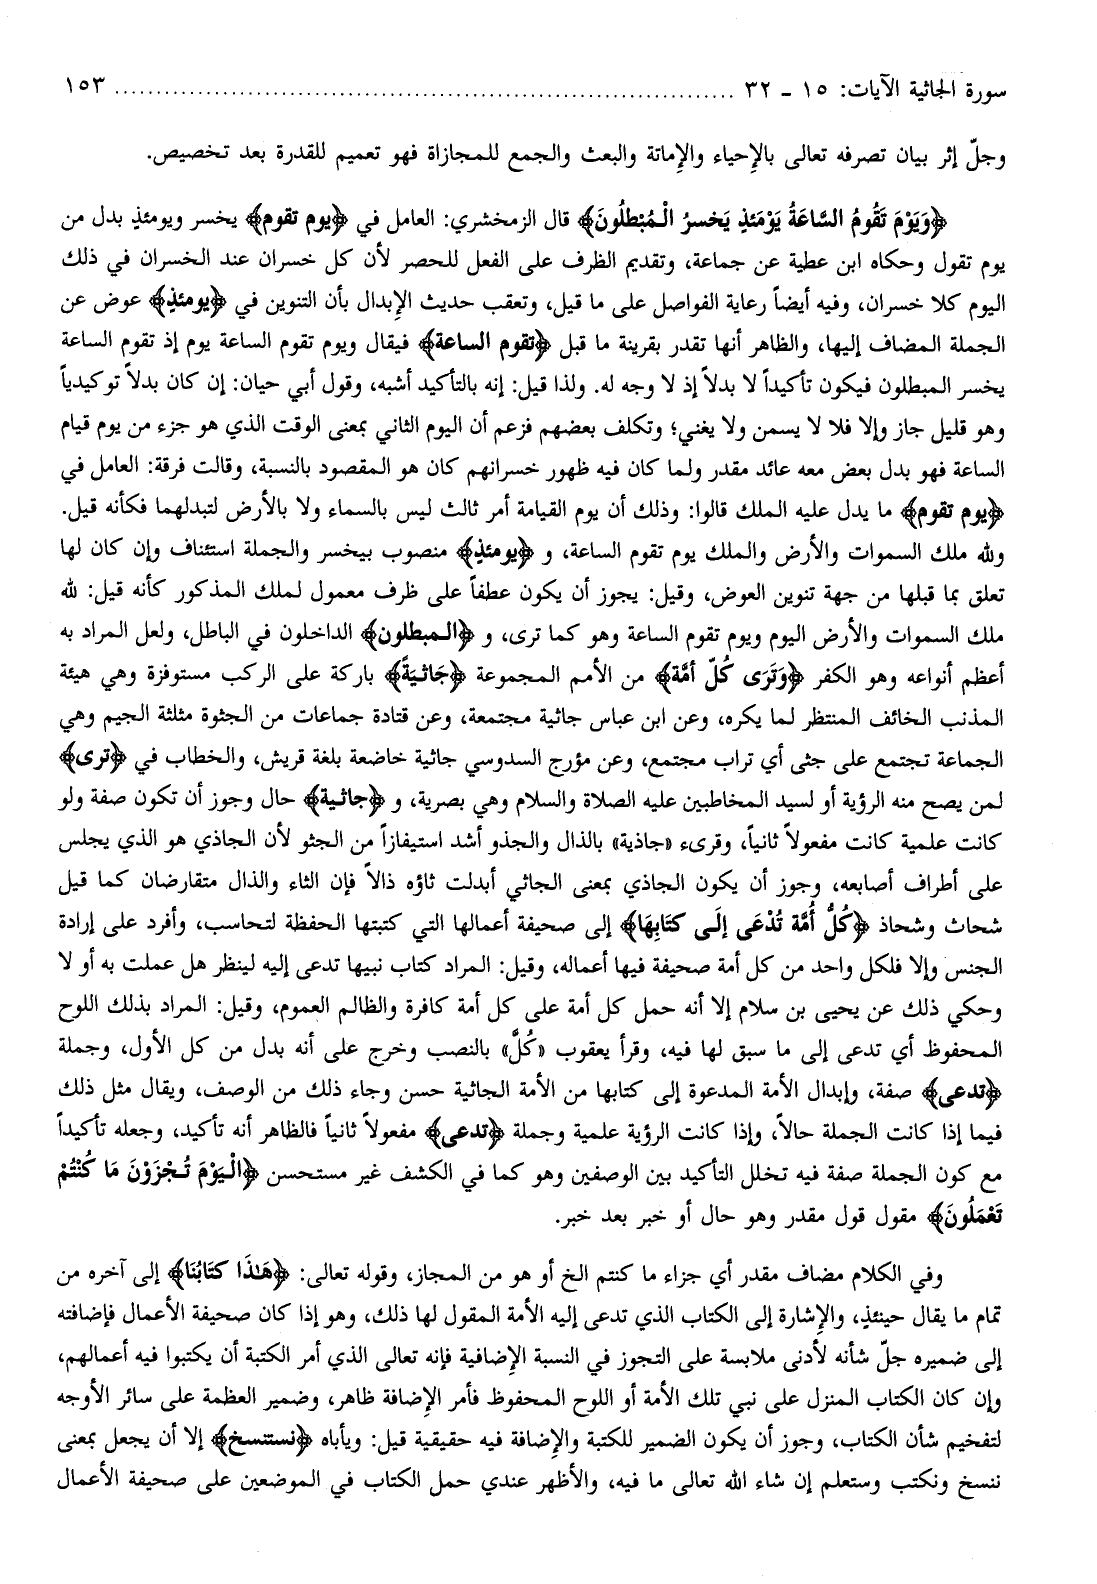 سورة الجاثية الآيات: ١٥ ـ ٣٢ ........................................................................ ١٥٣
وجلّ إثر بيان تصرفه تعالى بالإِحياء والإِماتة والبعث والجمع للمجازاة فهو تعميم للقدرة بعد تخصيص.
﴿وَيَوْمَ تَقُومُ السَّاعَةُ يَوْمَئذٍ يَخسرُ الْمُبْطلُونَ﴾ قال الزمخشري: العامل في ﴿يوم تقوم﴾ يخسر ويومئذٍ بدل من
يوم تقول وحكاه ابن عطية عن جماعة، وتقديم الظرف على الفعل للحصر لأن كل خسران عند الخسران في ذلك
اليوم كلا خسران، وفيه أيضاً رعاية الفواصل على ما قيل، وتعقب حديث الإِبدال بأن التنوين في ﴿يومئذٍ﴾ عوض عن
الجملة المضاف إليها، والظاهر أنها تقدر بقرينة ما قبل ﴿تقوم الساعة﴾ فيقال ويوم تقوم الساعة يوم إذ تقوم الساعة
يخسر المبطلون فيكون تأكيداً لا بدلاً إذ لا وجه له. ولذا قيل: إنه بالتأكيد أشبه، وقول أبي حيان: إن كان بدلاً توكيدياً
وهو قليل جاز وإلا فلا لا يسمن ولا يغني؛ وتكلف بعضهم فزعم أن اليوم الثاني بمعنى الوقت الذي هو جزء من يوم قيام
الساعة فهو بدل بعض معه عائد مقدر ولما كان فيه ظهور خسرانهم كان هو المقصود بالنسبة، وقالت فرقة: العامل في
﴿يوم تقوم﴾ ما يدل عليه الملك قالوا: وذلك أن يوم القيامة أمر ثالث ليس بالسماء ولا بالأرض لتبدلهما فكأنه قيل.
ولله ملك السموات والأرض والملك يوم تقوم الساعة، و ﴿يومئذٍ﴾ منصوب بيخسر والجملة استئناف وإن كان لها
تعلق بما قبلها من جهة تنوين العوض، وقيل: يجوز أن يكون عطفاً على ظرف معمول لملك المذكور كأنه قيل: لله
ملك السموات والأرض اليوم ويوم تقوم الساعة وهو كما ترى، و ﴿المبطلون﴾ الداخلون في الباطل، ولعل المراد به
أعظم أنواعه وهو الكفر ﴿وَتَرَى كُلّ أمَّة﴾ من الأمم المجموعة ﴿جَاثيَةً﴾ باركة على الركب مستوفزة وهي هيئة
المذنب الخائف المنتظر لما يكره، وعن ابن عباس جاثية مجتمعة، وعن قتادة جماعات من الجثوة مثلثة الجيم وهي
الجماعة تجتمع على جثى أي تراب مجتمع، وعن مؤرج السدوسي جاثية خاضعة بلغة قريش، والخطاب في ﴿ترى﴾
لمن يصح منه الرؤية أو لسيد المخاطبين عليه الصلاة والسلام وهي بصرية، و ﴿جاثية﴾ حال وجوز أن تكون صفة ولو
كانت علمية كانت مفعولاً ثانياً، وقرىء «جاذية» بالذال والجذو أشد استيفازاً من الجثو لأن الجاذي هو الذي يجلس
على أطراف أصابعه، وجوز أن يكون الجاذي بمعنى الجاثي أبدلت ثاؤه ذالاً فإن الثاء والذال متقارضان كما قيل
شحاث وشحاذ ﴿كُلُّ أُمَّة تُدْعَى إلَى كتَابهَا﴾ إلى صحيفة أعمالها التي كتبتها الحفظة لتحاسب، وأفرد على إرادة
الجنس وإلا فلكل واحد من كل أمة صحيفة فيها أعماله، وقيل: المراد كتاب نبيها تدعى إليه لينظر هل عملت به أو لا
وحكي ذلك عن يحيى بن سلام إلا أنه حمل كل أمة على كل أمة كافرة والظالم العموم، وقيل: المراد بذلك اللوح
المحفوظ أي تدعى إلى ما سبق لها فيه، وقرأ يعقوب «كُلَّ» بالنصب وخرج على أنه بدل من كل الأول، وجملة
﴿تدعى﴾ صفة، وإبدال الأمة المدعوة إلى كتابها من الأمة الجاثية حسن وجاء ذلك من الوصف، ويقال مثل ذلك
فيما إذا كانت الجملة حالاً، وإذا كانت الرؤية علمية وجملة ﴿تدعى﴾ مفعولاً ثانياً فالظاهر أنه تأكيد، وجعله تأكيداً
مع كون الجملة صفة فيه تخلل التأكيد بين الوصفين وهو كما في الكشف غير مستحسن ﴿الْيَوْمَ تُجْزَوْنَ مَا كُنْتُمْ
تَعْمَلُونَ﴾ مقول قول مقدر وهو حال أو خبر بعد خبر.
وفي الكلام مضاف مقدر أي جزاء ما كنتم الخ أو هو من المجاز، وقوله تعالى: ﴿هَـٰذَا كتَابُنَا﴾ إلى آخره من
تمام ما يقال حينئذٍ، والإِشارة إلى الكتاب الذي تدعى إليه الأمة المقول لها ذلك، وهو إذا كان صحيفة الأعمال فإضافته
إلى ضميره جلّ شأنه لأدنى ملابسة على التجوز في النسبة الإِضافية فإنه تعالى الذي أمر الكتبة أن يكتبوا فيه أعمالهم،
وإن كان الكتاب المنزل على نبي تلك الأمة أو اللوح المحفوظ فأمر الإِضافة ظاهر، وضمير العظمة على سائر الأوجه
لتفخيم شأن الكتاب، وجوز أن يكون الضمير للكتبة والإِضافة فيه حقيقية قيل: ويأباه ﴿نستنسخ﴾ إلا أن يجعل بمعنى
ننسخ ونكتب وستعلم إن شاء الله تعالى ما فيه، والأظهر عندي حمل الكتاب في الموضعين على صحيفة الأعمال